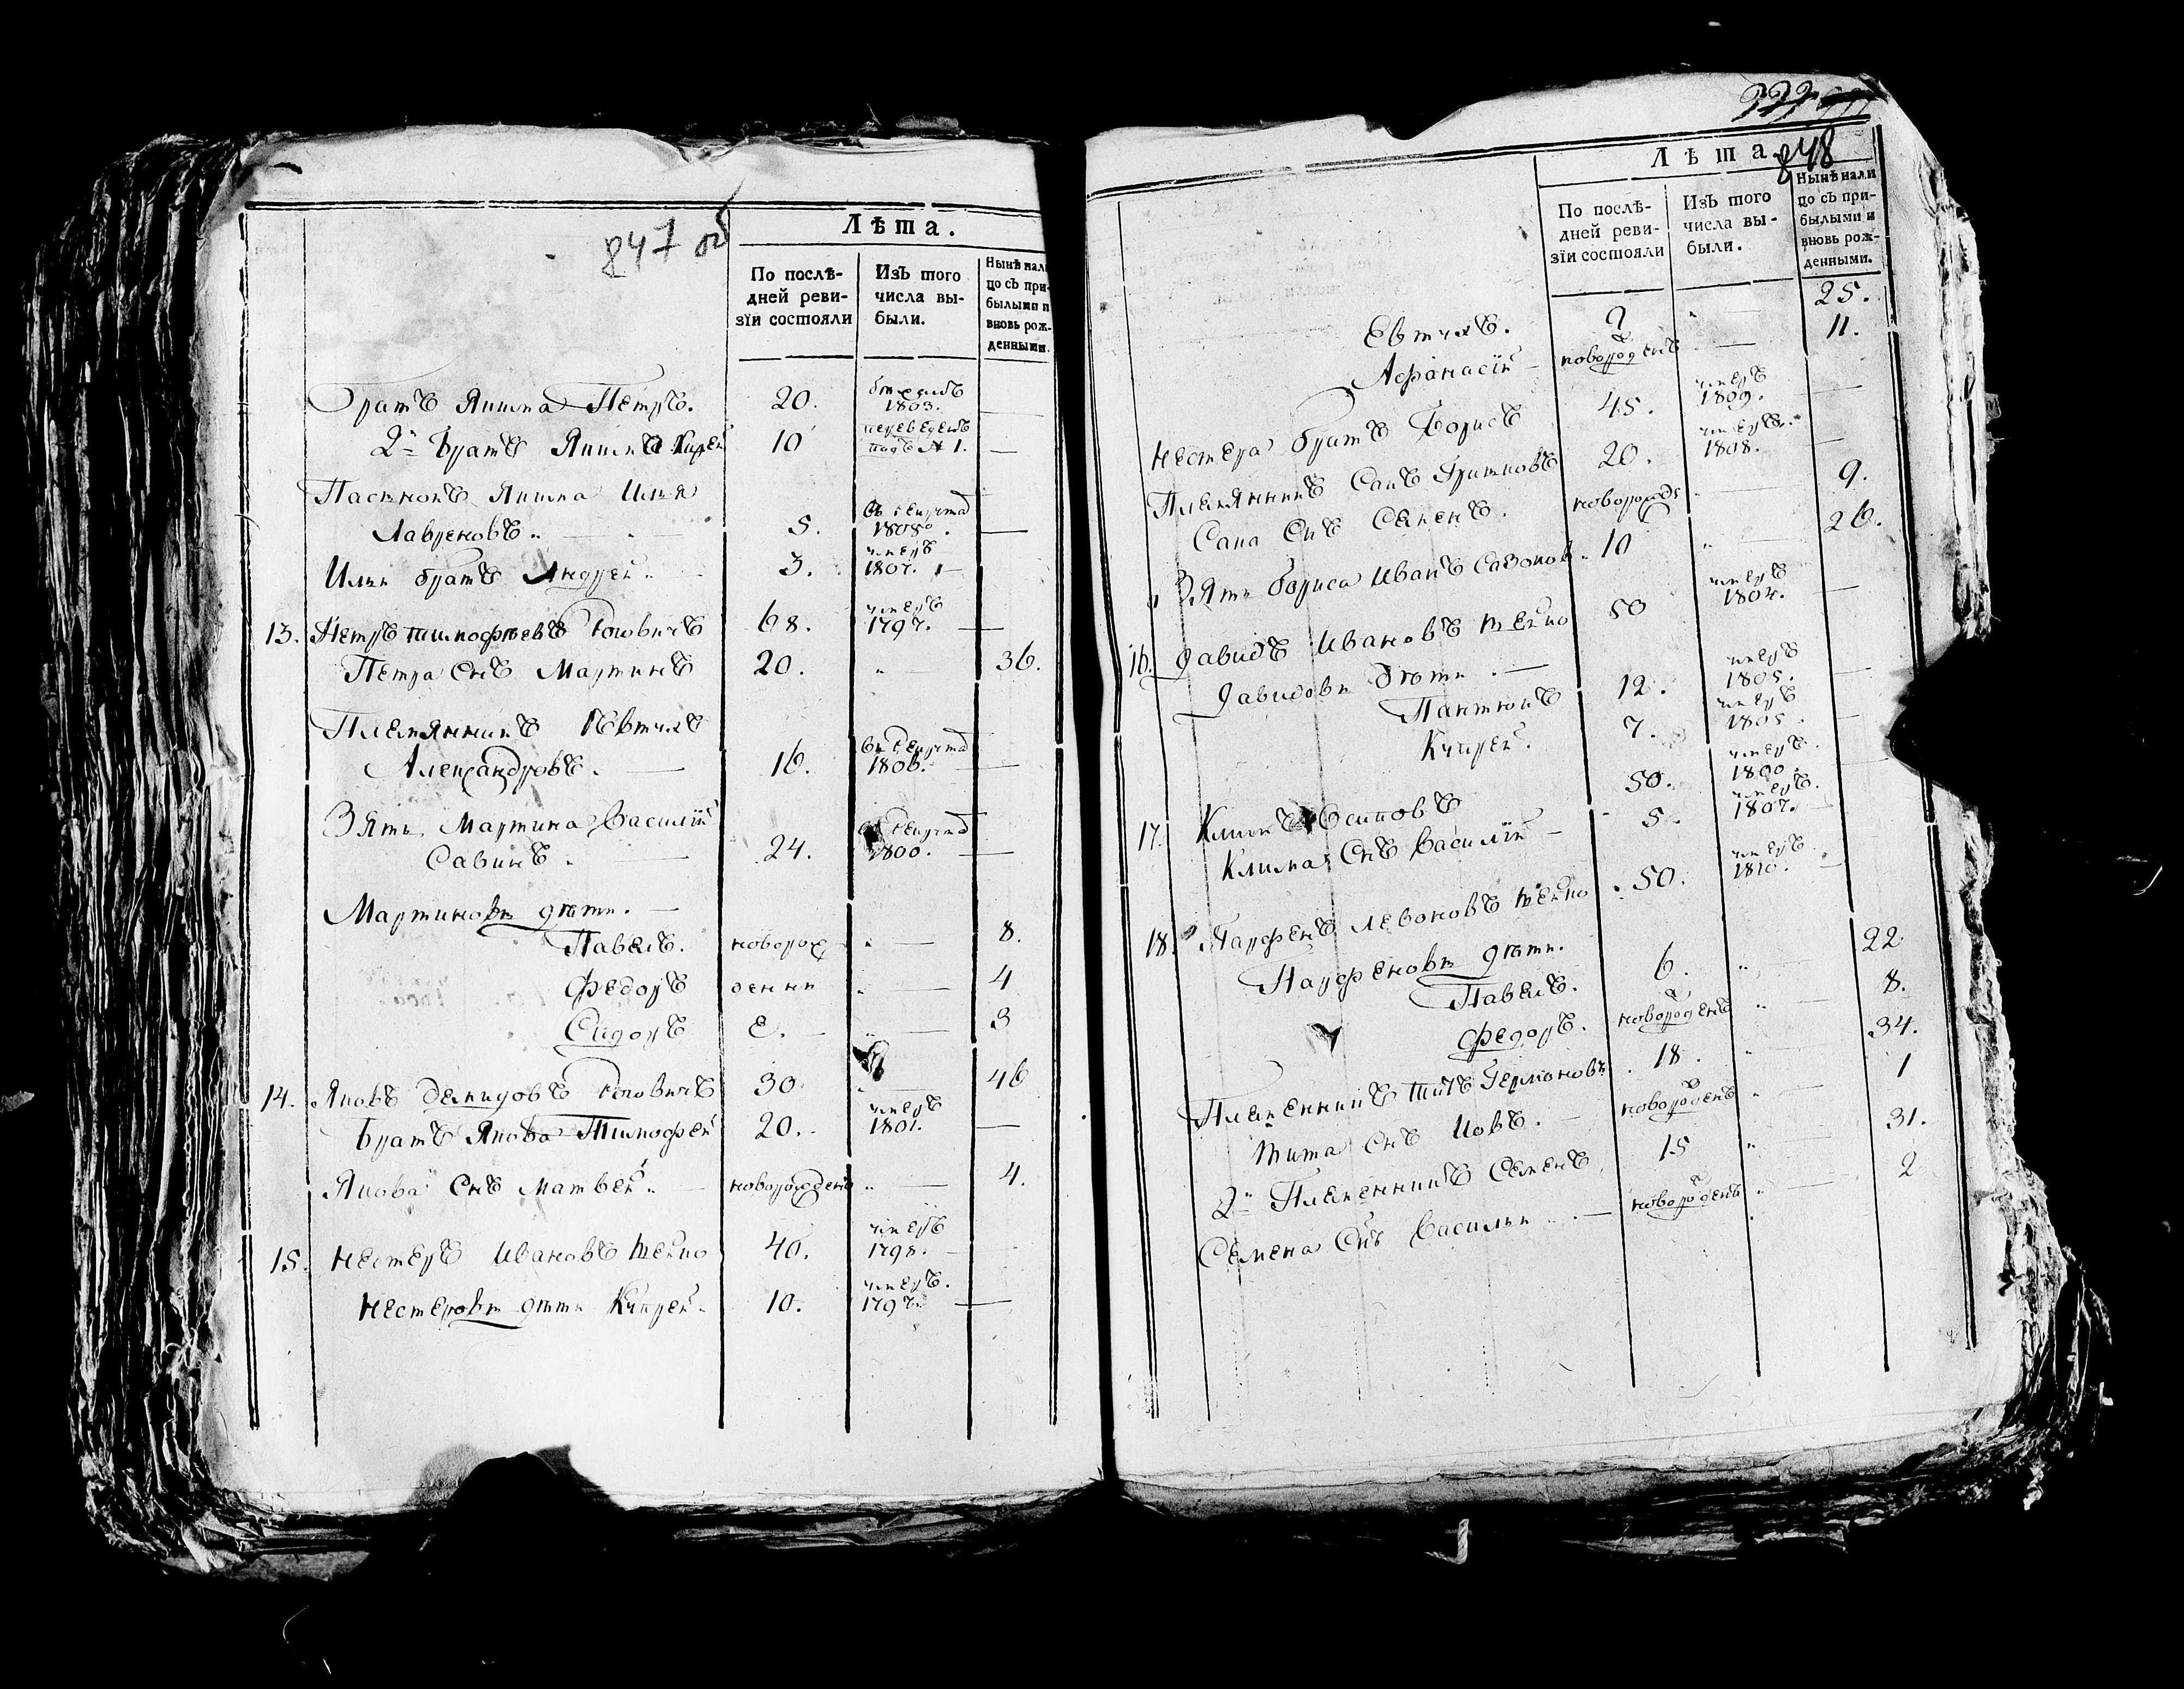 847 об
Лѣта.
По послѣ-
дней реви-
зїи состояли
Изъ того
числа вы-
были.
Нынѣ нали
цо съ при-
былыми и
вновь рож-
денными.
братъ Яшкна Петръ. 20. 1803. —
2й братъ 10 переведенъ
подъ № 1. —
Пасынокъ Илья
Лавреновъ. 5. въ рекрута
1808. —
Ильи братъ Андрей. 3. умеръ
1807. —
13. Петръ Тимофѣевъ 68. умеръ
1797. —
Петра Снъ Мартинъ 20. — 36.
Племянникъ Евтихъ
Александровъ. 16. въ рекрута
1806. —
Зять Мартина Василій
Савинъ. 24. въ рекрута
1800. —
Мартиновы дѣти. —
Павелъ. новорож — 8.
Федоръ денни — 4
Сидоръ е. — 3
14. Яковъ Демидовъ 30 — 46
братъ Якова Тимофей 20. умеръ
1801. —
Якова Снъ Матвей новорожденъ — 4.
15. Нестеръ Ивановъ 40. умеръ
1798. —
Нестеровы дѣти Кипрей. 10. умеръ
1797. —
848
Лѣта.
По послѣ-
дней реви-
зїи состояли
Изъ того
числа вы-
были.
Нынѣ нали
цо съ при-
былыми и
вновь рож-
денными.
Евтихъ. 2 — 25.
Афанасій — новорожденъ — 11.
Нестера братъ Борисъ 45. умеръ
1809. —
Племянникъ 20. умеръ
1808. —
Снъ Семенъ. новорожде — 9.
Зять бориса Иванъ Сазонов. 10 — 26.
16. Давидъ Ивановъ 50 умеръ
1804. —
Давидовы дѣти. —
12. умеръ
1805. —
Кипрей. 7. умеръ
1805. —
17. Климъ Осиповъ 50. умеръ
1800. —
Клима Снъ Василій — 5. умеръ
1807. —
18. Парфенъ Левоновъ 50. умеръ
1810. —
Парфеновы дѣти.
Павелъ. 6. — 22
Федоръ. новорожденъ — 8.
Племенникъ Титъ Гермоновъ. 18. — 34.
Тита Снъ Иовъ. — новорожденъ — 1
2й Племенникъ Семенъ 15 — 31.
Семена Снъ Васильи — новорожденъ — 2